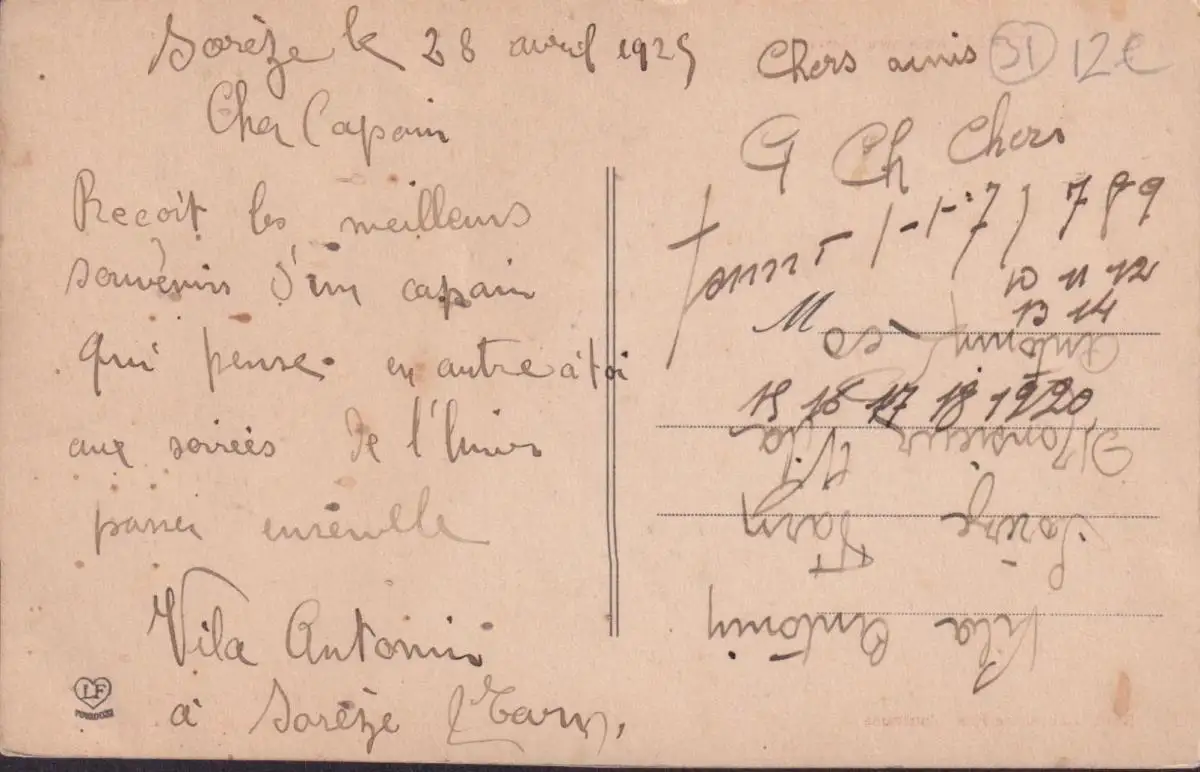 Sorèze le 28 avril 1925
Cher Copain
Recoit les meilleurs
souvenirs d'un copain
qui pense en autre à toi
aux soirées de l'hiver
passer ensemble
Vila Antonin
à Sorèze (Tarn).
LF
Chers amis 31 12€
G Ch Chers
7 8 9
10 11 12
13 14
M
Antonin
15 16 17 18 19 20
Monsieur Vila
Sorèze Tarn
Vila Antonin